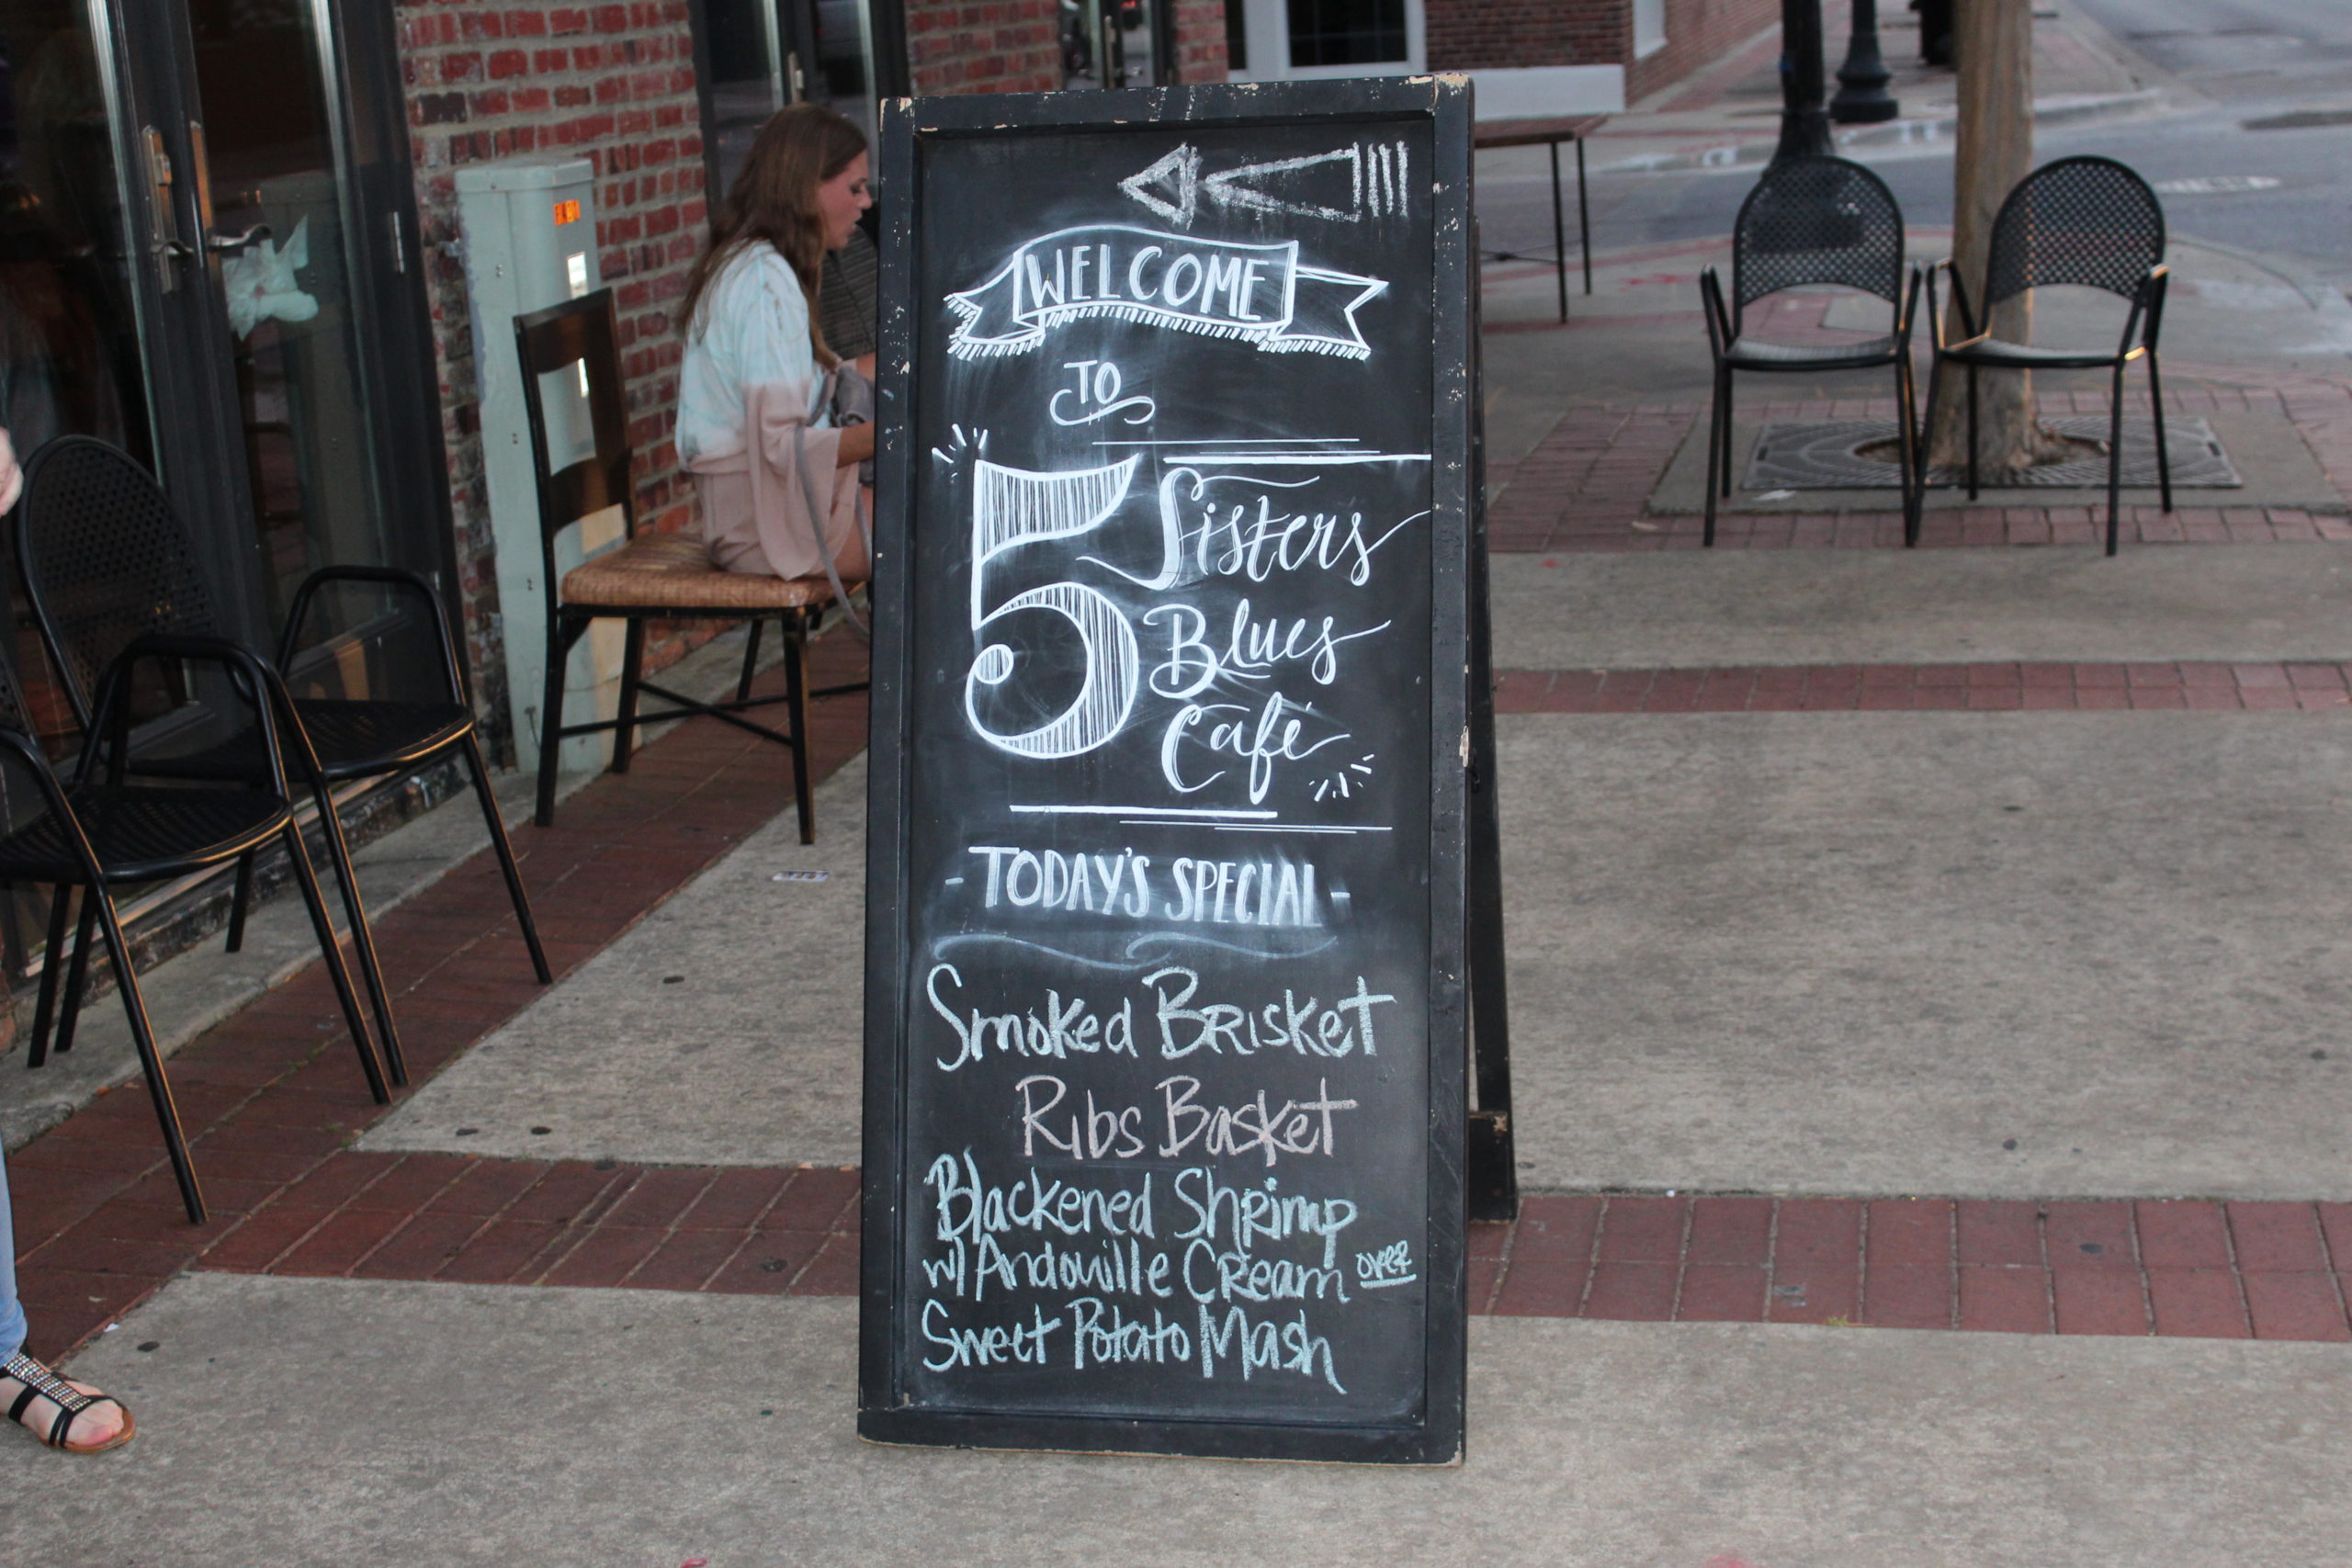 WELCOME
TO
5 Sisters
Blues
Café
- TODAY'S SPECIAL -
Smoked BRISKET
Ribs Basket
Blackened ShRimp
w/ Andouille CReam oveR
Sweet Potato Mash